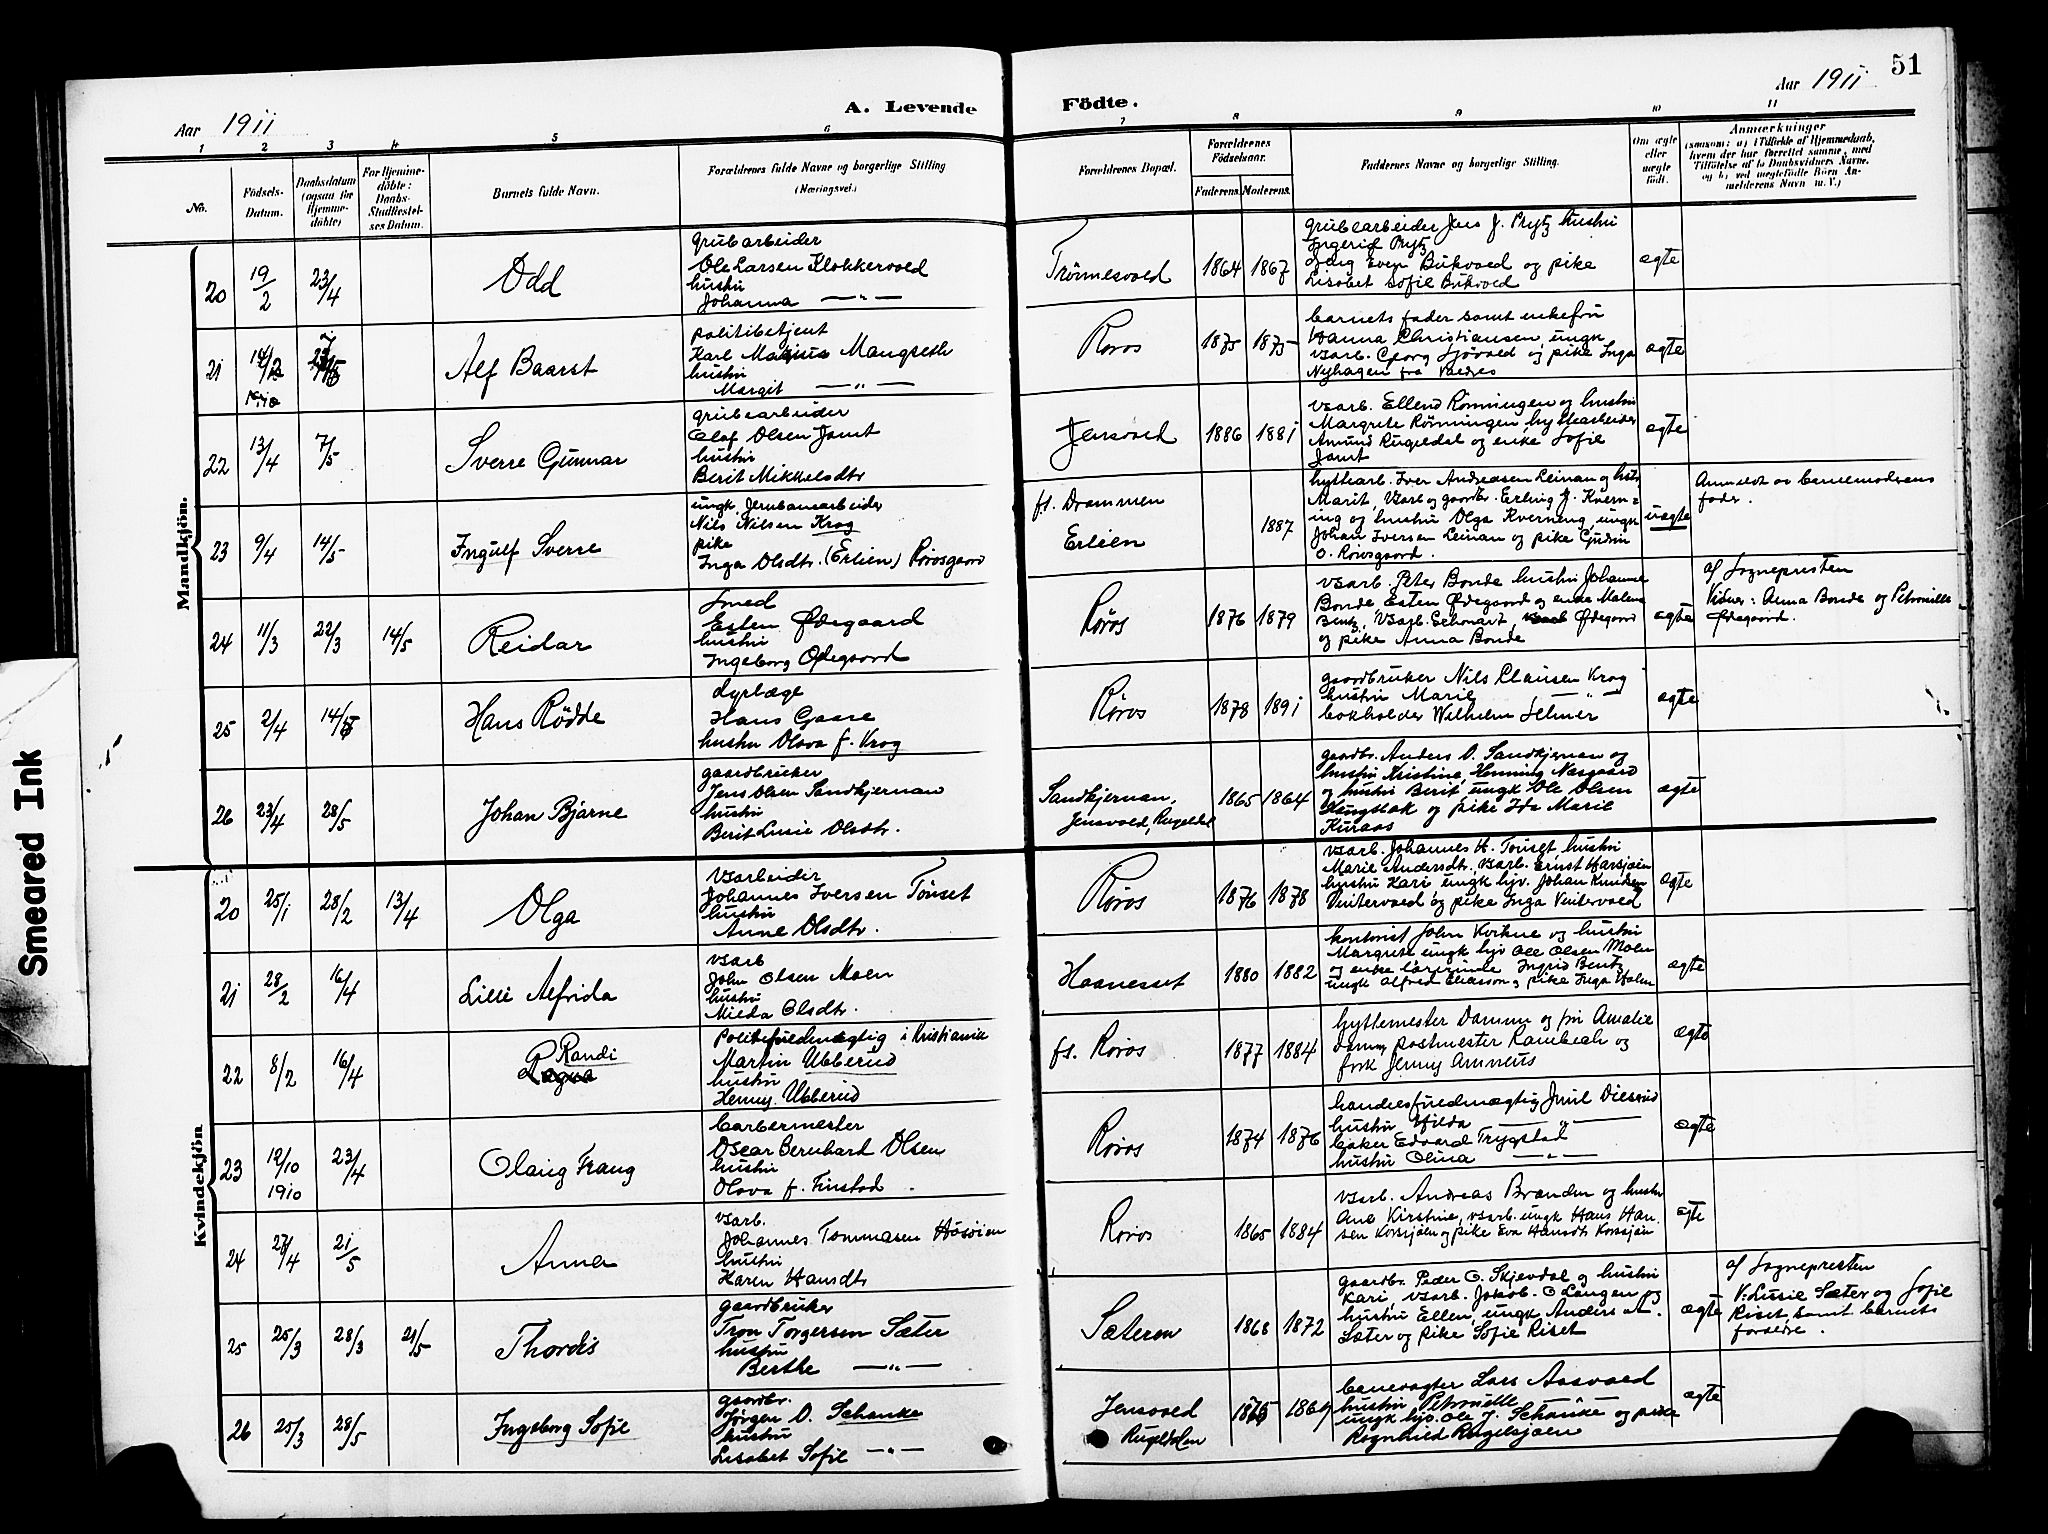 51
Aar 1911
A. Levende
Födte.
Aar 1911
1 2 3 4 5 6 7 8 9 10 11
No.
Fødsels-
Datum.
Daabsdatum
(ogsaa for
Hjemme-
døbte)
For Hjemme-
døbte:
Daabs-
Stadfæstel-
ses Datum.
Barnets fulde Navn.
Forældrenes fulde Navne og borgerlige Stilling
(Næringsvei.)
Forældrenes Bopæl.
Forældrenes
Födselsaar.
Faderens. Moderens.
Faddernes Navne og borgerlige Stilling.
Om ægte
eller
uægte
født.
Anmærkninger
(saasom: a) i Tilfælde af Hjemmedaab,
hvem der har forrettet samme, med
Tilføielse af to Daabsvidners Navne.
og b) ved uegtefödte Börn An-
melderens Navn m. V.)
Mandkjön.
20
19/2
23/4
Odd
grubarbeider
Ole Larsen Klokkervold
hustru
Johanna —"—
Trönnesvold
1864 1867
grubearbeider Jens J. Prytz hustru
Ingerid Prytz
Even Bukvold og pike
Lisabet Sofie Bukvold
ægte
21
1910
Alf Baarst
politibetjent
Karl Marius Mangseth
hustru
Margit —"—
Røros
1875 1875
barnets fader samt enkefru
Hanna Christiansen, ungk
vsarb. Georg Sjövold og pike Inga
Nyhagen fra Valdres
ægte
22
13/4
7/5
Sverre Gunnar
grubearbeider
Olaf Olsen Jamt
hustru
Berit Mikkelsdtr
Jensvold
1886 1881
vsarb. Ellend Rönningen og hustru
Margrete Rönningen hyttearbeider
Amund Rugeldal og enke Sofie
Jamt
ægte
23
9/4
14/5
Ingulf Sverre
ungk. Jernbanearbeider
Nils Nilsen Krog
pike
Inga Olsdtr. (Erlien) Rörosgaard
fs. Drammen
Erlien
1887
hyttearb. Iver Andreasen Leinan og hstr
Marit, Vsarb og gaardbr. Erling J. Kvern=
eng og hustru Olga Kverneng, ungk
Johan Iversen Leinan og pike Gudrun
O. Rörosgaard.
uægte
Anmeldt av barnemoderens
fader.
24
11/3
22/3
14/5
Reidar
Smed
Esten Ödegaard
hustru
Ingeborg Ödegaard
Røros
1876 1879
vsarb. Peter Bonde hustru Johanne
Bonde Esten Ødegaard og enke Malene
Bentz, Vsarb. Leonart, Ødegaard
og pike Anna Bonde
ægte
af Sognepresten
Vidner: Anna Bonde og Petronille
Ødegaard.
25
2/4
14/5
Hans Rödde
dyrlæge
Hans Gaare
hustru Olava f. Krog
Røros
1878 1891
gaardbruker Nils Clausen Krog
hustru Marie —"—
bokholder Wilhelm Selmer
ægte
26
23/4
28/5
Johan Bjarne
gaardbruker
Jens Olsen Sandkjernan
hustru
Berit Lusie Olsdtr.
Sandkjernan,
Jensvold, Rugeldal
1865 1864
gaardbr. Anders O. Sandkjernan og
hustru Kristine, Henning Næsgaard
og hustru Berit, ungk Ole Olsen
og pike Ida Marie
Kuraas
ægte
Kvindekjön
20
25/1
28/2
13/4
Olga
Vsarbeider
Johannes Iversen Tönset
hustru
Anne Olsdtr.
Røros
1876 1878
vsarb. Johannes H. Tönset, hustru
Marie Andersdtr, vsarb. Ernst Harsjøen
hustru Kari ungk hjv. Johan Knudsen
Vintervold og pike Inga Vintervold
ægte
21
28/2
16/4
Lilli Alfrida
vsarb
John Olsen Moen
hustru
Milda Olsdtr.
Haanesset
1880 1882
kontorist John Kvikne og hustru
Margrete ungk hjv Ole Olsen Moen
og enke lærerinde Ingrid Bentz
ungk Alfred Eliasson og pike Inga Holm
ægte
22
8/2
16/4
Randi
Ragna
Politifuldmægtig i Kristiania
Martin Ubberud
hustru
Henny Ubberud
fs. Røros
1877 1884
hyttemester Damm og fru Amalie
Damm, postmester Rambech og
frøk Jenny Amneus
ægte
23
12/10
1910
23/4
Olaug Fraug
barbermester
Oscar Bernhard Olsen
hustru
Olava f. Finstad.
Røros
1874 1876
handelsfuldmægtig Juul Diesrud
hustru Hilda —"—
baker Edvard Trygstad
hustru Olina —"—
ægte
24
27/4
21/5
Anna
vsarb.
Johannes Tommasen Hösöien
hustru
Karen Hansdtr
Røros
1865 1884
vsarb. Andreas Branden og hustru
Ane Kirstine, vsarb. ungk Hans Han
sen Korssjøen og pike Eva Hansdtr Korssjøen
ægte
25
25/3
28/3
21/5
Thordis
gaardbruker
Tron Torgersen Sæter
hustru
Berthe —"—
Sæteren
1868 1872
gaardbr. Peder O. Skjevdal og hustru
Kari, vsarb. Jakob. O Langen og
hustru Ellen, ungk Anders A.
Sæter og pike Sofie Riset
ægte
af Sognepresten
V. Lusie Sæter og Sofie
Riset, samt barnets
forældre.
26
25/3
28/5
Ingeborg Sofie
gaardbr.
Jørgen O. Schanke
hustru
Lisabet Sofie —"—
Jensvold
Rugeldalen
1865 1869
banevogter Lars Aasvold
hustru Petronille
ungk hjv. Ole J. Schanke og pike
Ragnhild Rugelsjøen
ægte
Smeared Ink